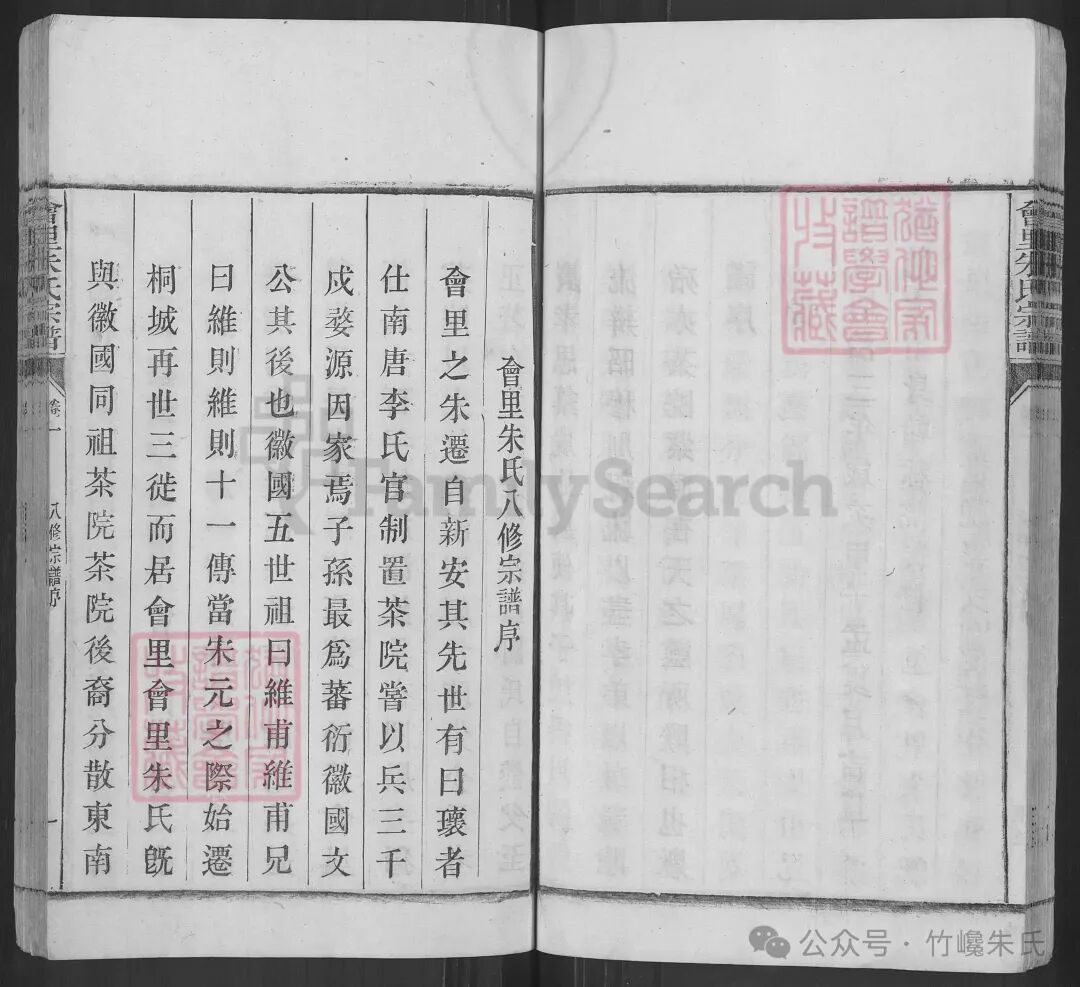 會里朱氏宗譜
猶他家
譜學會
收藏
會里朱氏八修宗譜序
會里之朱遷自新安其先世有曰瓌者
仕南唐李氏官制置茶院嘗以兵三千
戍婺源因家焉子孫最爲蕃衍徽國文
公其後也徽國五世祖曰維甫維甫兄
曰維則維則十一傳當宋元之際始遷
桐城再世三徙而居會里會里朱氏旣
與徽國同祖茶院茶院後裔分散東南
猶他家
譜學會
收藏
會里朱氏宗譜
卷一
八修宗譜序
一
FamilySearch
公众号·竹巉朱氏